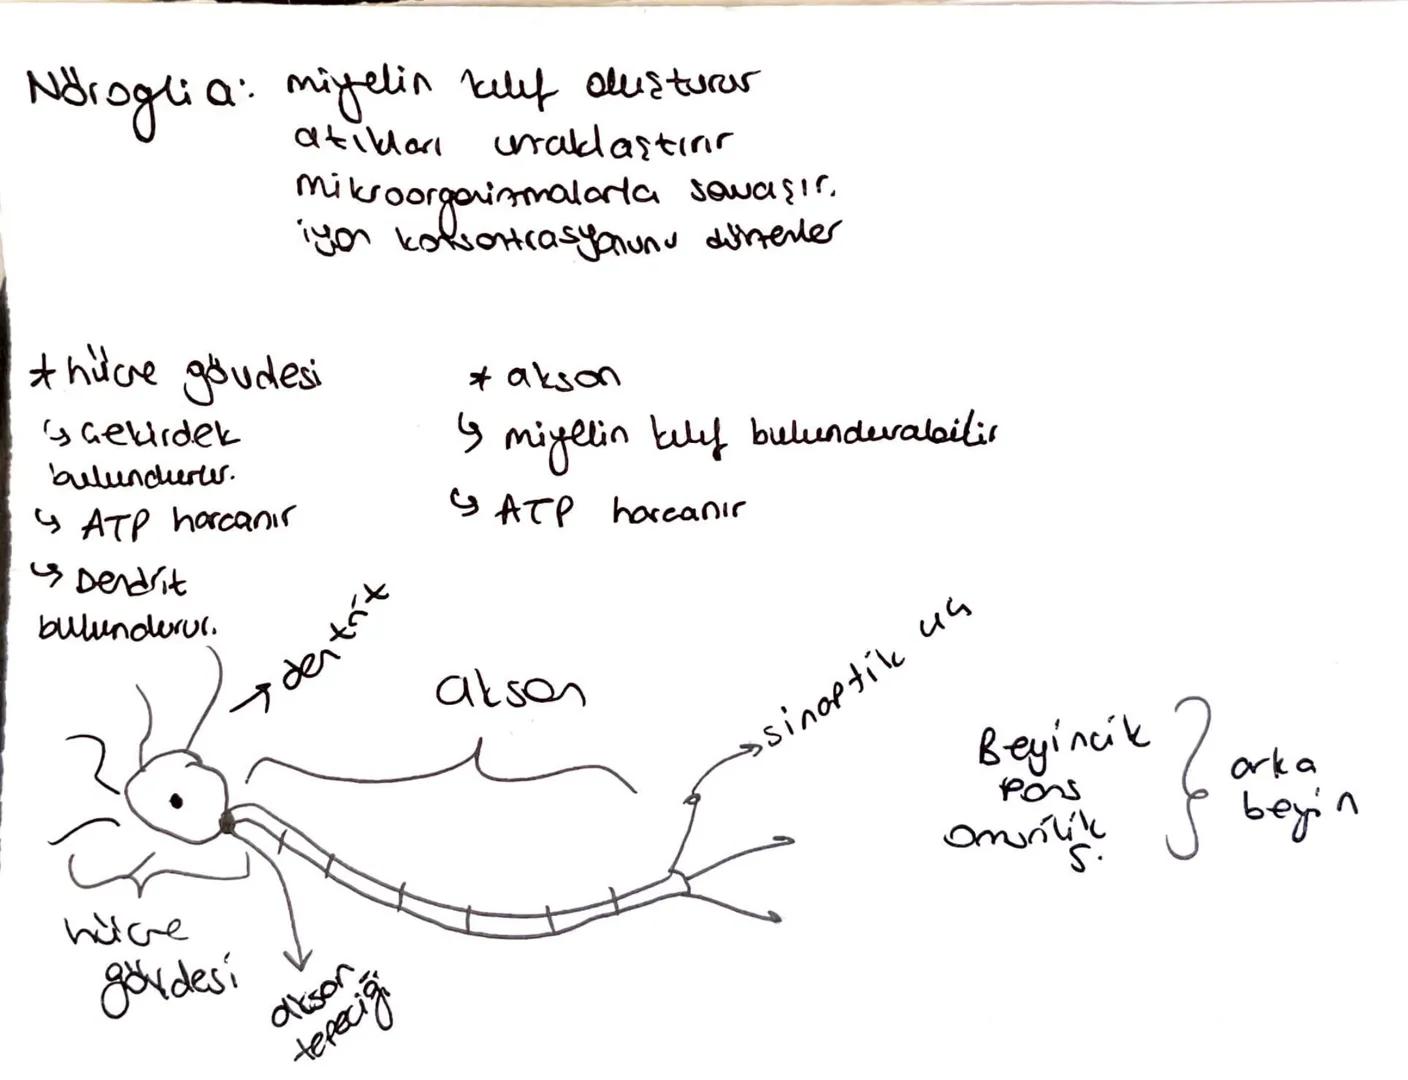 Nöroglia: miyelin kılıf oluşturur
atıkları uzaklaştırır
mikroorganizmalarla savaşır.
iyon konsantrasyonunu düzenler
* hücre gövdesi
↳ Çekirdek
bulundurur.
↳ ATP harcanır
↳ Dendrit
bulundurur.
* akson
↳ miyelin kılıf bulundurabilir
↳ ATP harcanır
dentrit
akson
sinaptik uç
hücre
gövdesi
akson
tepeciği
Beyincik
Pons
Omurilik
S.
arka
beyin